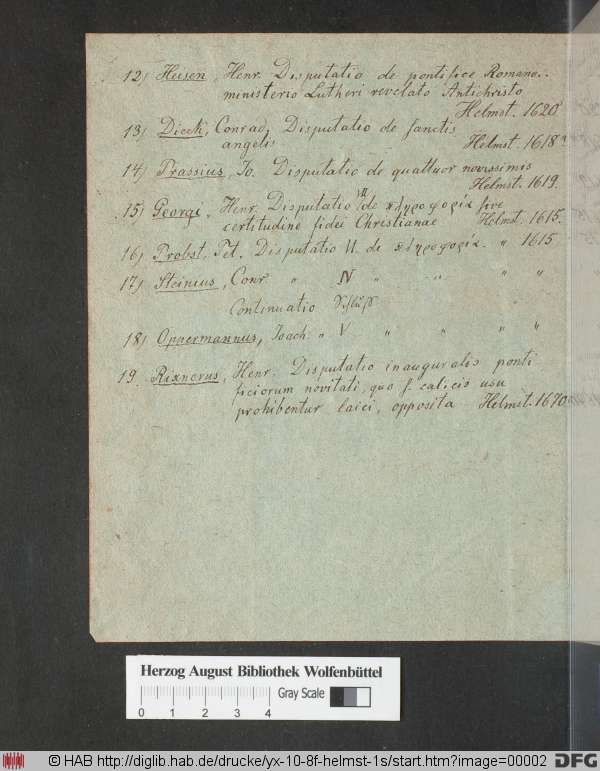 12) Heisen, Henr. Disputatio de pontifice Romano..
ministerio Lutheri revelato Antichristo
Helmst. 1620
13) Dieck, Conrad, Disputatio de sanctis
angelis Helmst. 1618
14) Prassius, Jo. Disputatio de quattuor novissimis
Helmst. 1619.
15) Georgi, Henr. Disputatio VII de πληροφορίᾳ sive
certitudine fidei Christianae Helmst. 1615.
16) Probst, Pet. Disputatio VI. de πληροφορίᾳ. " 1615.
17) Steinius, Conr. " IV " " " "
Continuatio
18) Oppermannus, Joach. " V " " " "
19. Rixnerus, Henr. Disputatio inauguralis ponti
ficiorum novitati, quo s. calicis usu
prohibentur laici, opposita Helmst. 1670
Herzog August Bibliothek Wolfenbüttel
Gray Scale
0 1 2 3 4
© HAB http://diglib.hab.de/drucke/yx-10-8f-helmst-1s/start.htm?image=00002
DFG